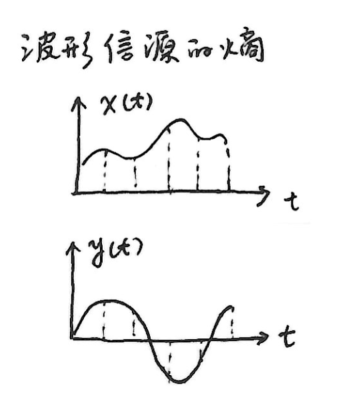 波形信源的熵
x(t)
t
y(t)
t